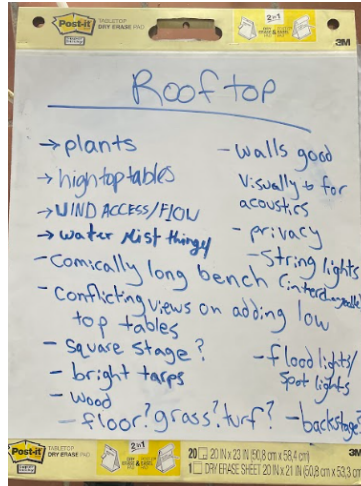 Post-it
TABLETOP
DRY ERASE PAD
2 in 1
3M
Rooftop
→ plants
→ hightop tables
→ WIND ACCESS/FLOW
→ water Mist thingy
- Comically long bench
- Conflicting views on adding low
top tables
- square stage?
- bright tarps
- wood
- floor? grass? turf?
- walls good
visually & for
acoustics
- privacy
- String lights
(interchangeable
- flood lights/
spot lights
- backstage?
Post-it
TABLETOP
DRY ERASE PAD
2 in 1
20 20 IN X 23 IN (50,8 cm x 58,4 cm)
1 DRY ERASE SHEET 20 IN X 21 IN (50,8 cm x 53,3 cm
3M